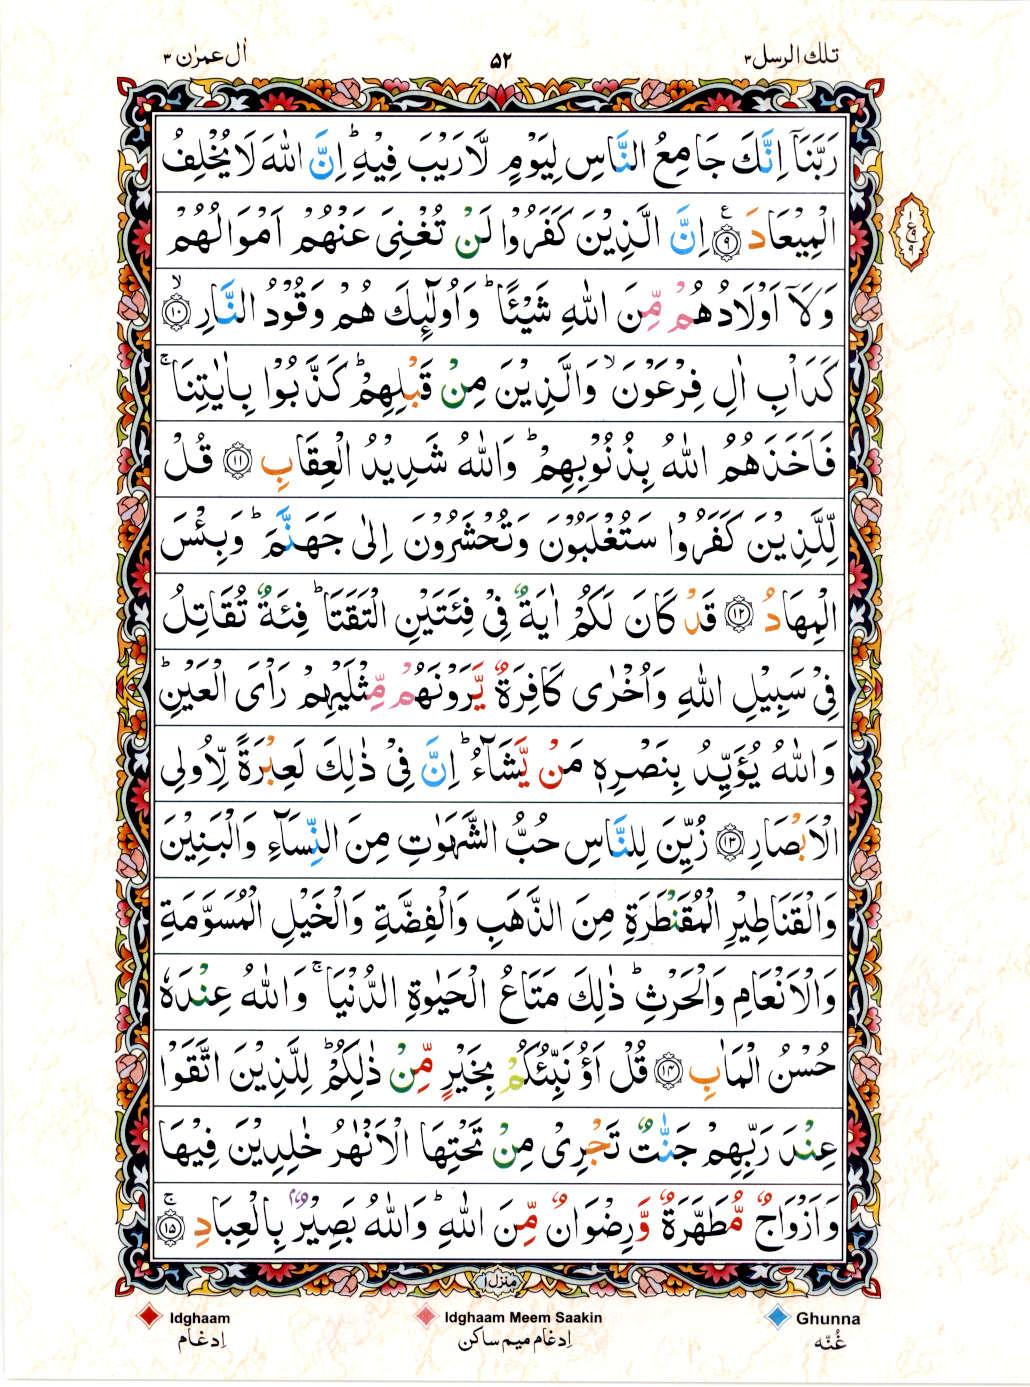 تلك الرسل ٣
٥٢
اٰل عمرٰن ٣
رَبَّنَاۤ اِنَّكَ جَامِعُ النَّاسِ لِيَوْمٍ لَّا رَيْبَ فِيْهِ ؕ اِنَّ اللّٰهَ لَا يُخْلِفُ
الْمِيْعَادَ ۩ ﴿٩﴾ ع اِنَّ الَّذِيْنَ كَفَرُوْا لَنْ تُغْنِىَ عَنْهُمْ اَمْوَالُهُمْ
وَلَاۤ اَوْلَادُهُمْ مِّنَ اللّٰهِ شَيْئًا ؕ وَاُولٰٓئِكَ هُمْ وَقُوْدُ النَّارِ ﴿١٠﴾ ۙ
كَدَاْبِ اٰلِ فِرْعَوْنَ ۙ وَالَّذِيْنَ مِنْ قَبْلِهِمْ ؕ كَذَّبُوْا بِاٰيٰتِنَا ۚ
فَاَخَذَهُمُ اللّٰهُ بِذُنُوْبِهِمْ ؕ وَاللّٰهُ شَدِيْدُ الْعِقَابِ ﴿١١﴾ قُلْ
لِّلَّذِيْنَ كَفَرُوْا سَتُغْلَبُوْنَ وَتُحْشَرُوْنَ اِلٰى جَهَنَّمَ ؕ وَبِئْسَ
الْمِهَادُ ﴿١٢﴾ قَدْ كَانَ لَكُمْ اٰيَةٌ فِىْ فِئَتَيْنِ الْتَقَتَا ؕ فِئَةٌ تُقَاتِلُ
فِىْ سَبِيْلِ اللّٰهِ وَاُخْرٰى كَافِرَةٌ يَّرَوْنَهُمْ مِّثْلَيْهِمْ رَاْىَ الْعَيْنِ ؕ
وَاللّٰهُ يُؤَيِّدُ بِنَصْرِهٖ مَنْ يَّشَآءُ ؕ اِنَّ فِىْ ذٰلِكَ لَعِبْرَةً لِّاُولِى
الْاَبْصَارِ ﴿١٣﴾ زُيِّنَ لِلنَّاسِ حُبُّ الشَّهَوٰتِ مِنَ النِّسَآءِ وَالْبَنِيْنَ
وَالْقَنَاطِيْرِ الْمُقَنْطَرَةِ مِنَ الذَّهَبِ وَالْفِضَّةِ وَالْخَيْلِ الْمُسَوَّمَةِ
وَالْاَنْعَامِ وَالْحَرْثِ ؕ ذٰلِكَ مَتَاعُ الْحَيٰوةِ الدُّنْيَا ۚ وَاللّٰهُ عِنْدَهٗ
حُسْنُ الْمَاٰبِ ﴿١٤﴾ قُلْ اَؤُنَبِّئُكُمْ بِخَيْرٍ مِّنْ ذٰلِكُمْ ؕ لِلَّذِيْنَ اتَّقَوْا
عِنْدَ رَبِّهِمْ جَنّٰتٌ تَجْرِىْ مِنْ تَحْتِهَا الْاَنْهٰرُ خٰلِدِيْنَ فِيْهَا
وَاَزْوَاجٌ مُّطَهَّرَةٌ وَّرِضْوَانٌ مِّنَ اللّٰهِ ؕ وَاللّٰهُ بَصِيْرٌۢ بِالْعِبَادِ ﴿١٥﴾ ۚ
منزل١
Idghaam
Idghaam Meem Saakin
Ghunna
اِدغام
اِدغام میم ساکن
غُنّه